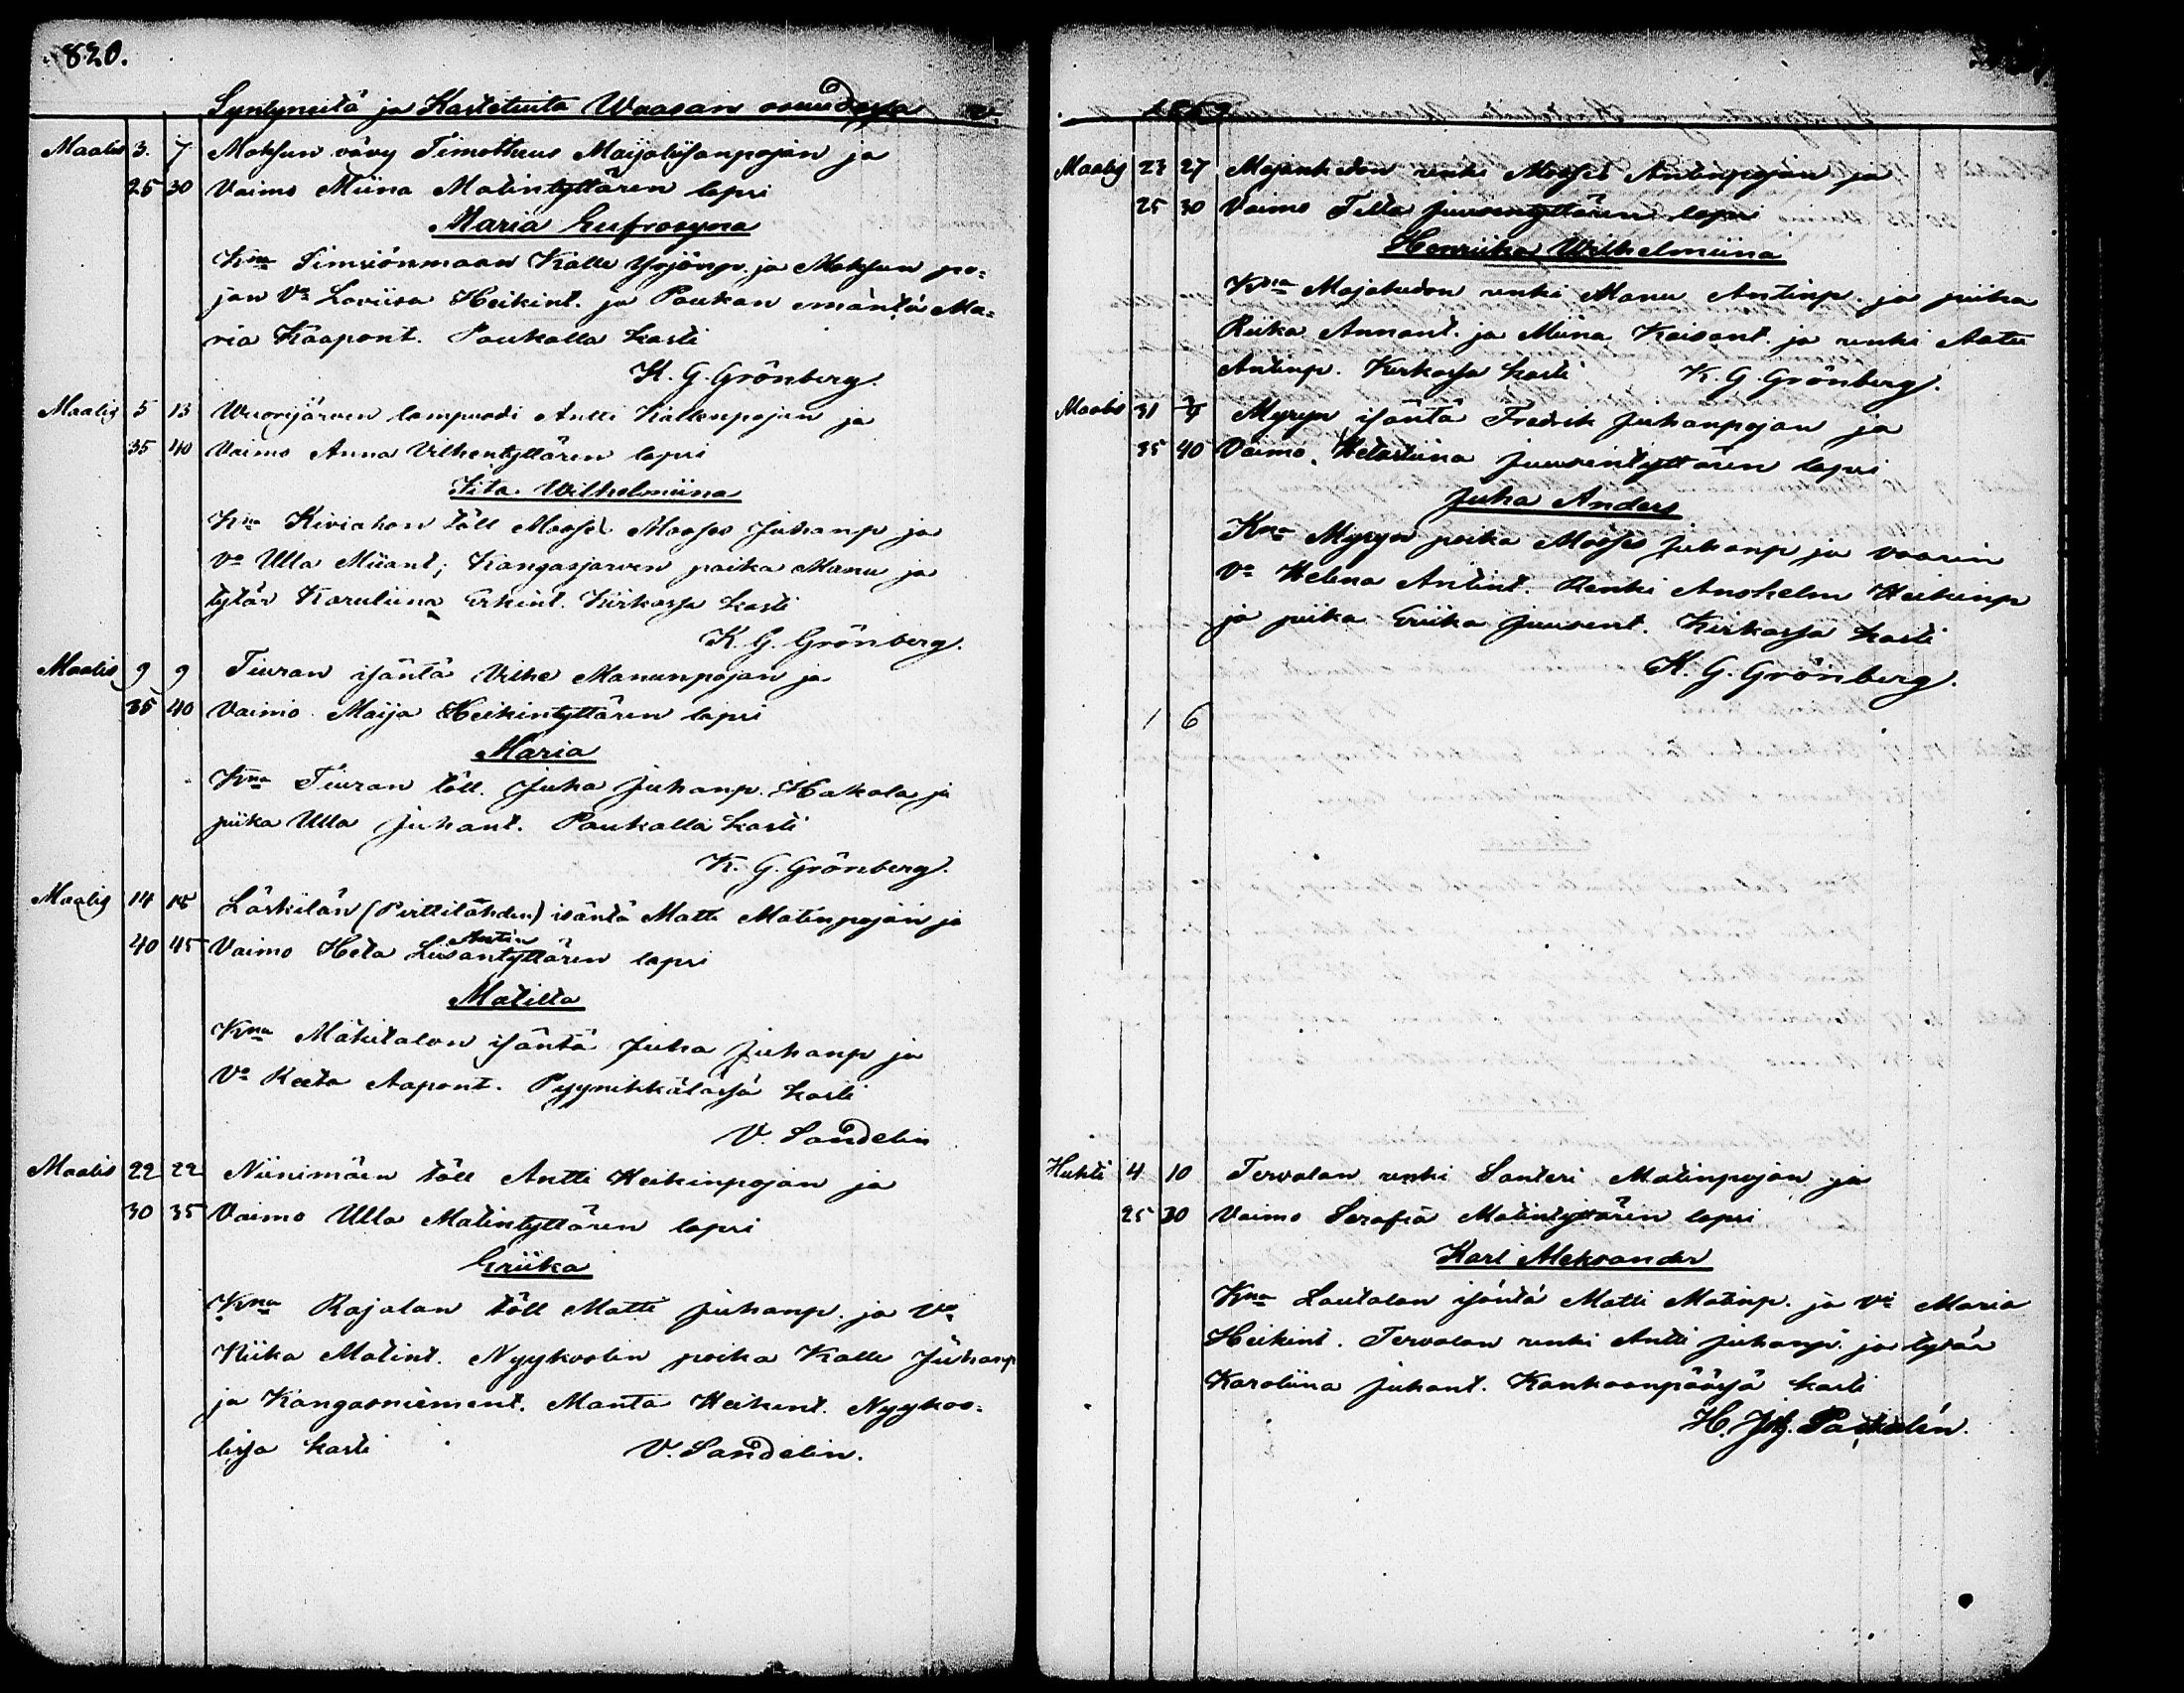 820.
Syntyneitä ja Kastetuita Waasan osuudessa v.
Maalis 3. 7 Moksun vävy Timotheus Maijaliisanpojan ja
25 30 Vaimo Miina Matintyttären lapsi
Maria Eufrosyna
Kna Simsiönmaan Kalle Yrjönp. ja Moksun po-
jan Vo Loviisa Heikint. ja Poukan emäntä Ma-
ria Kaapont. Poukalla kasti
K. G. Grönberg.
Maalis 5 13 Wuorijärven lampuodi Antti Kallenpojan ja
35 40 Vaimo Anna Vilhentyttären lapsi
Fita Wilhelmiina
Kna Kiviahon töll Mooses Juhanp ja
Vo Ulla Miiant; Kangasjärven poika Manu ja
tytär Karuliina Erkint. Kirkossa kasti
K. G. Grönberg.
Maalis 9 9 Tiuran isäntä Vilhe Manunpojan ja
35 40 Vaimo Maija Heikintyttären lapsi
Maria
Kna Tiuran töll. Juha Juhanp. Hakala ja
piika Ulla Juhant. Poukalla kasti
K. G. Grönberg.
Maalis 14 15 Läskilän (Perttilähden) isäntä Matti Matinpojan ja
Antin
40 45 Vaimo Heta Liisantyttären lapsi
Matilta
Kna Mäkitalon isäntä Juha Juhanp ja
Vo Reeta Aapont. Pyynikkälässä kasti
V. Sandelin
Maalis 22 22 Niinimäen töll Antti Heikinpojan ja
30 35 Vaimo Ulla Matintyttären lapsi
Eriika
Kna Rajalan töll Matti Juhanp. ja Vo
Riika Matint. Nyykoolin poika Kalle Juhanp
ja Kangasniement. Manta Heikint. Nyykoo-
lissa kasti V. Sandelin.
Maalis 23 27 renki Mooses Antinpojan ja
25 30 Vaimo Tilta Juusentyttären lapsi
Henriika Wilhelmiina
Kna renki Manu Antinp. ja piika
Riika Annant. ja Miina Keisant. ja renki Aatu
Antinp. Kirkossa kasti K. G. Grönberg.
Maalis 31 Myryn isäntä Fredrik Juhanpojan ja
35 40 Vaimo Hetastiina Juusentyttären lapsi
Juha Anders
Kna Myryn poika Mooses Juhanp ja vaarin
Vo Helena Antint. Renki Anshelm Heikinp
ja piika Eriika Juusent. Kirkossa kasti
K. G. Grönberg.
1 6
Huhti 4 10 Tervalan renki Santeri Matinpojan ja
25 30 Vaimo Serafia Matintyttären lapsi
Karl Aleksander
Kna Lautalan isäntä Matti Matinp. ja Vo Maria
Heikint. Tervalan renki Antti Juhanp. ja tytär
Karoliina Juhant. Kankaanpäässä kasti
H. Joh.